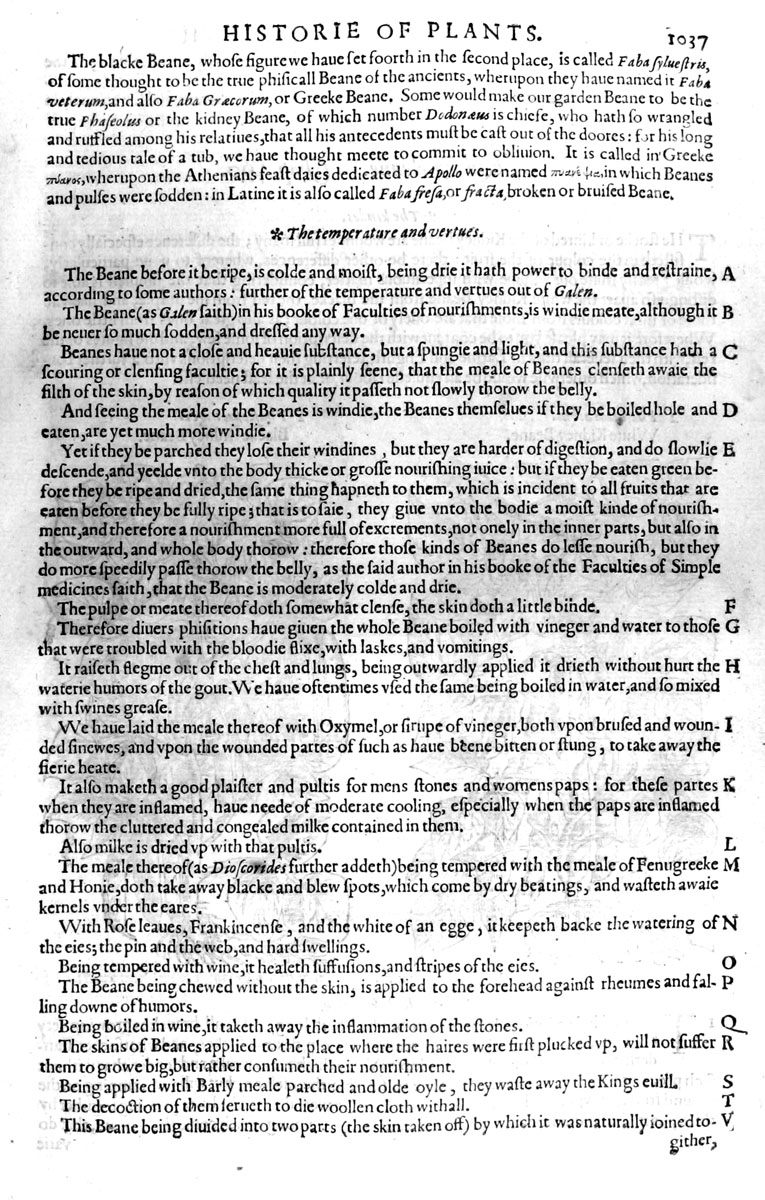 HISTORIE OF PLANTS. 1037
The blacke Beane, whose figure we haue set foorth in the second place, is called Faba syluestris,
of some thought to be the true phisicall Beane of the ancients, wherupon they haue named it Faba
veterum, and also Faba Græcorum, or Greeke Beane. Some would make our garden Beane to be the
true Phaseolus or the kidney Beane, of which number Dodonæus is chiefe, who hath so wrangled
and ruffled among his relatiues, that all his antecedents must be cast out of the doores: for his long
and tedious tale of a tub, we haue thought meete to commit to obliuion. It is called in Greeke
wherupon the Athenians feast daies dedicated to Apollo were named in which Beanes
and pulses were sodden: in Latine it is also called Faba fresa, or fracta, broken or bruised Beane.
❧ The temperature and vertues.
The Beane before it be ripe, is colde and moist, being drie it hath power to binde and restraine, A
according to some authors: further of the temperature and vertues out of Galen.
The Beane (as Galen saith) in his booke of Faculties of nourishments, is windie meate, although it B
be neuer so much sodden, and dressed any way.
Beanes haue not a close and heauie substance, but a spungie and light, and this substance hath a C
scouring or clensing facultie; for it is plainly seene, that the meale of Beanes clenseth awaie the
filth of the skin, by reason of which quality it passeth not slowly thorow the belly.
And seeing the meale of the Beanes is windie, the Beanes themselues if they be boiled hole and D
eaten, are yet much more windie.
Yet if they be parched they lose their windines, but they are harder of digestion, and do slowlie E
descende, and yeelde vnto the body thicke or grosse nourishing iuice: but if they be eaten green be-
fore they be ripe and dried, the same thing hapneth to them, which is incident to all fruits that are
eaten before they be fully ripe; that is to saie, they giue vnto the bodie a moist kinde of nourish-
ment, and therefore a nourishment more full of excrements, not onely in the inner parts, but also in
the outward, and whole body thorow: therefore those kinds of Beanes do lesse nourish, but they
do more speedily passe thorow the belly, as the said author in his booke of the Faculties of Simple
medicines saith, that the Beane is moderately colde and drie.
The pulpe or meate thereof doth somewhat clense, the skin doth a little binde. F
Therefore diuers phisitions haue giuen the whole Beane boiled with vineger and water to those G
that were troubled with the bloodie flixe, with laskes, and vomitings.
It raiseth flegme out of the chest and lungs, being outwardly applied it drieth without hurt the H
waterie humors of the gout. We haue oftentimes vsed the same being boiled in water, and so mixed
with swines grease.
We haue laid the meale thereof with Oxymel, or sirupe of vineger, both vpon brused and woun- I
ded sinewes, and vpon the wounded partes of such as haue beene bitten or stung, to take away the
fierie heate.
It also maketh a good plaister and pultis for mens stones and womens paps: for these partes K
when they are inflamed, haue neede of moderate cooling, especially when the paps are inflamed
thorow the cluttered and congealed milke contained in them.
Also milke is dried vp with that pultis. L
The meale thereof (as Dioscorides further addeth) being tempered with the meale of Fenugreeke M
and Honie, doth take away blacke and blew spots, which come by dry beatings, and wasteth awaie
kernels vnder the eares.
With Rose leaues, Frankincense, and the white of an egge, it keepeth backe the watering of N
the eies; the pin and the web, and hard swellings.
Being tempered with wine, it healeth suffusions, and stripes of the eies. O
The Beane being chewed without the skin, is applied to the forehead against rheumes and fal- P
ling downe of humors.
Being boiled in wine, it taketh away the inflammation of the stones. Q
The skins of Beanes applied to the place where the haires were first plucked vp, will not suffer R
them to growe big, but rather consumeth their nourishment.
Being applied with Barly meale parched and olde oyle, they waste away the Kings euill. S
The decoction of them serueth to die woollen cloth withall. T
This Beane being diuided into two parts (the skin taken off) by which it was naturally ioined to- V
gither,